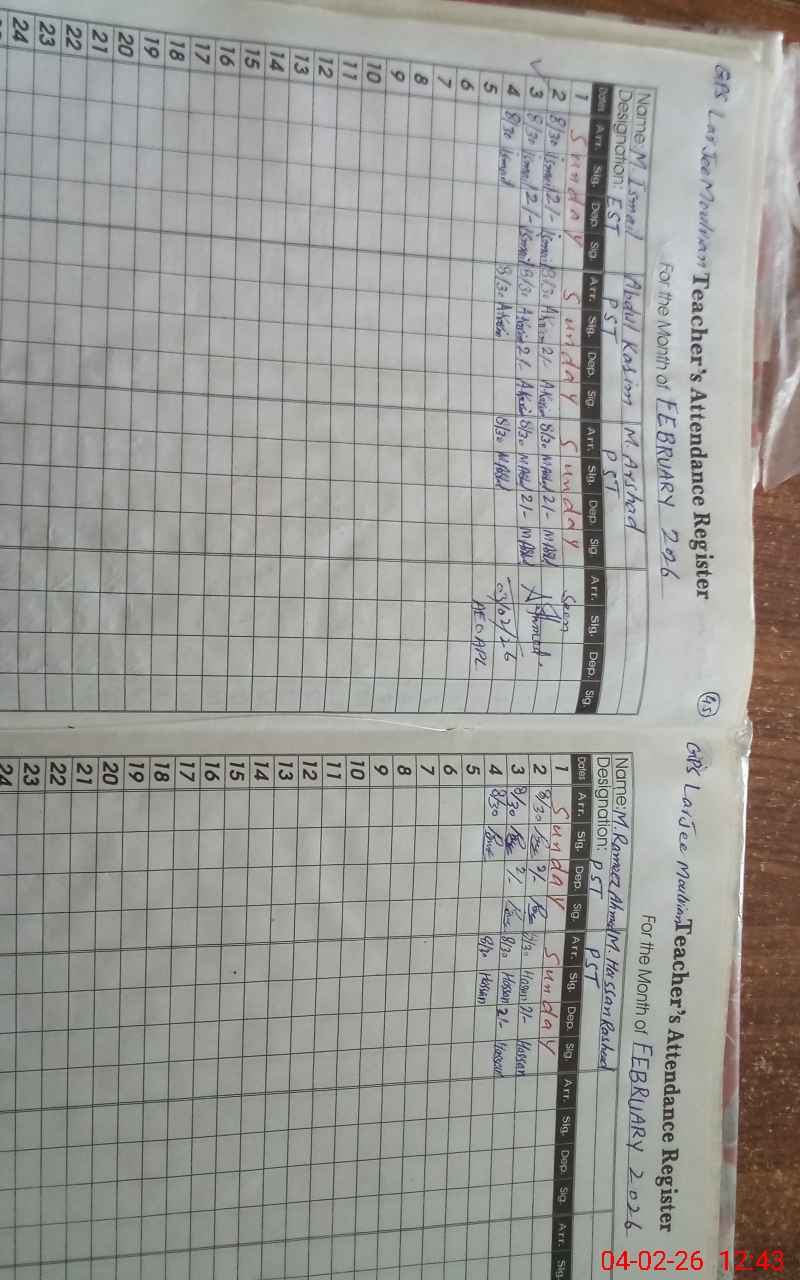 GPS Lar Jee Moulvian Teacher's Attendance Register 45
For the Month of FEBRUARY 2026
Name: M. Ismail Abdul Kasim M. Arshad
Designation: EST PST PST
Dates Arr. Sig. Dep. Sig. Arr. Sig. Dep. Sig. Arr. Sig. Dep. Sig. Arr. Sig. Dep. Sig.
1 Sunday Sunday Sunday Seen
2 8/30 Ismail 2/- Ismail 8/30 AKasim 2/- AKasim 8/30 2/-
3 8/30 Ismail 2/- Ismail 8/30 AKasim 2/- AKasim 8/30 2/- Ahmad
4 8/30 Ismail 8/30 AKasim 8/30 03/02/26
5 AEO APL
6
7
8
9
10
11
12
13
14
15
16
17
18
19
20
21
22
23
24
GPS Lar Jee Moulvian Teacher's Attendance Register
For the Month of FEBRUARY 2026
Name: M. Rameez Ahmad M. Hassan Rasheed
Designation: PST PST
Dates Arr. Sig. Dep. Sig. Arr. Sig. Dep. Sig. Arr. Sig. Dep. Sig. Arr. Sig.
1 Sunday Sunday
2 8/30 2/- 8/30 Hassan 2/- Hassan
3 8/30 2/- 8/30 Hassan 2/- Hassan
4 8/30 8/30 Hassan
5
6
7
8
9
10
11
12
13
14
15
16
17
18
19
20
21
22
23
24
04-02-26 12:43